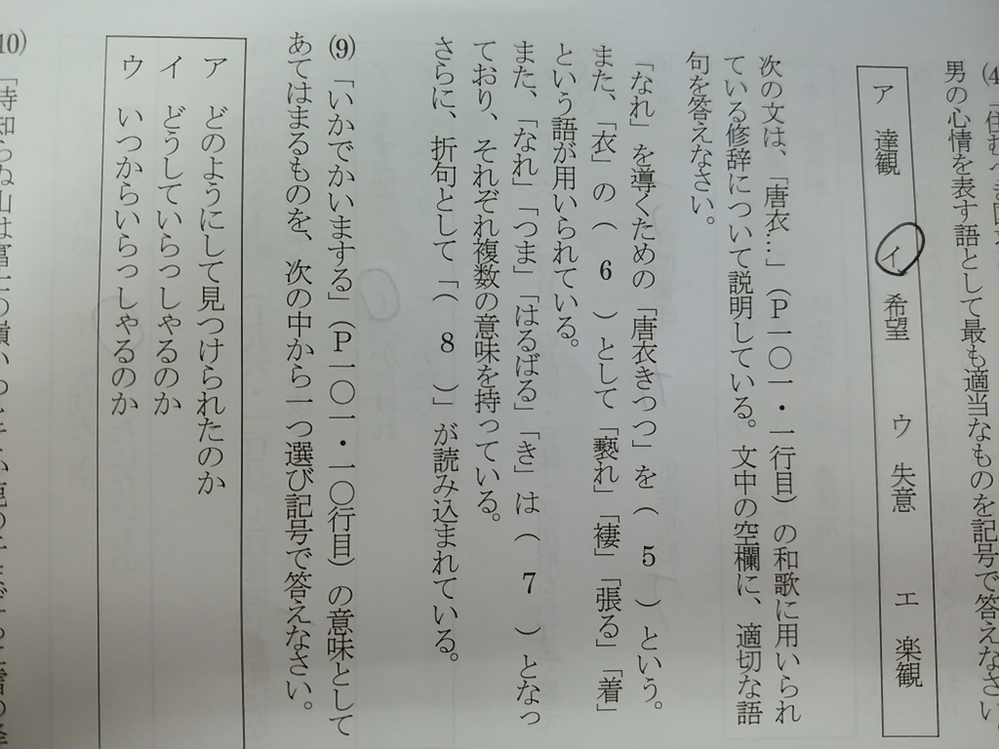 男の心情を表す語として最も適当なものを記号で答えなさい
ア 達観 イ 希望 ウ 失意 エ 楽観
次の文は、「唐衣…」(P一〇一・一行目)の和歌に用いられ
ている修辞について説明している。文中の空欄に、適切な語
句を答えなさい。
「なれ」を導くための「唐衣きつつ」を( 5 )という。
また、「衣」の( 6 )として「褻れ」「褄」「張る」「着」
という語が用いられている。
また、「なれ」「つま」「はるばる」「き」は( 7 )となっ
ており、それぞれ複数の意味を持っている。
さらに、折句として「( 8 )」が読み込まれている。
(9) 「いかでかいまする」(P一〇一・一〇行目)の意味として
あてはまるものを、次の中から一つ選び記号で答えなさい。
ア どのようにして見つけられたのか
イ どうしていらっしゃるのか
ウ いつからいらっしゃるのか
10) 「時知らぬ山は富士の嶺